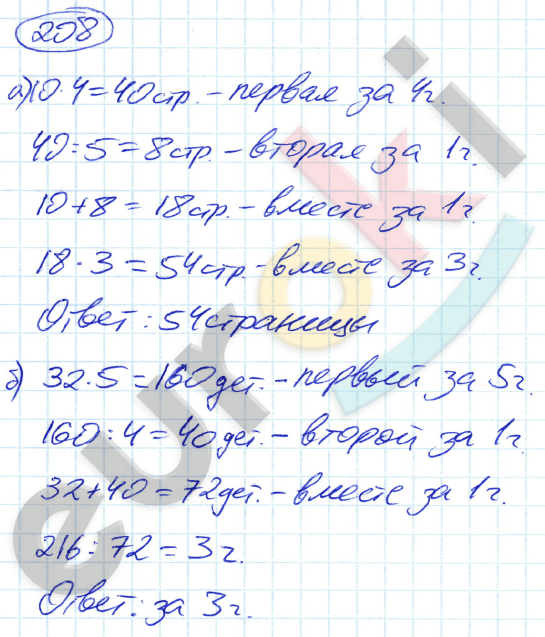 208
а) 10·4=40стр. - первая за 4ч.
40:5=8стр. - вторая за 1ч.
10+8=18стр. - вместе за 1ч.
18·3=54стр. - вместе за 3ч.
Ответ: 54страницы
б) 32·5=160дет. - первый за 5ч.
160:4=40дет. - второй за 1ч.
32+40=72дет. - вместе за 1ч.
216:72=3ч.
Ответ: за 3ч.
euroki